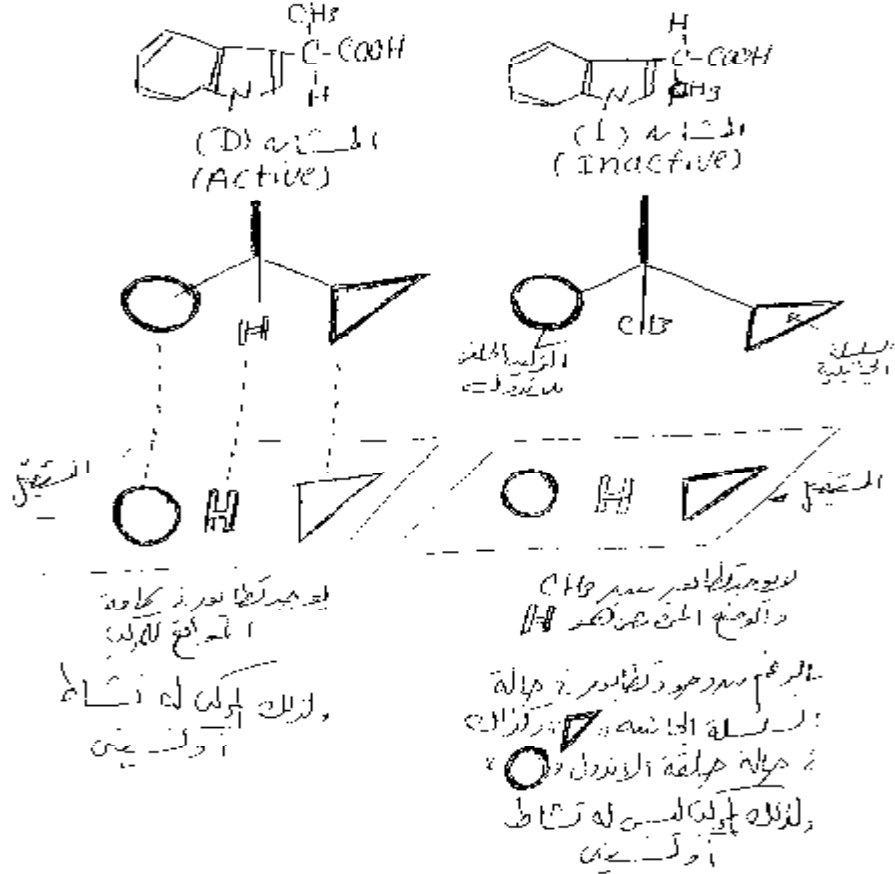 CH3
C-COOH
N
H
المشابه (D)
(Active)
H
C-COOH
N
CH3
المشابه (L)
(Inactive)
H
CH3
المركب الحلقى
السلسلة
الجانبية
المستقبل
H
H
المستقبل
يوجد تطابق في كافة
المواقع للمركب
ولذلك المركب له نشاط
أوكسيني
لا يوجد تطابق بين CH3
والوضع المخصص هو H
بالرغم من وجود تطابق في حالة
السلسلة الجانبية وكذلك
في حالة حلقة الاندول
ولذلك المركب ليس له نشاط
أوكسيني